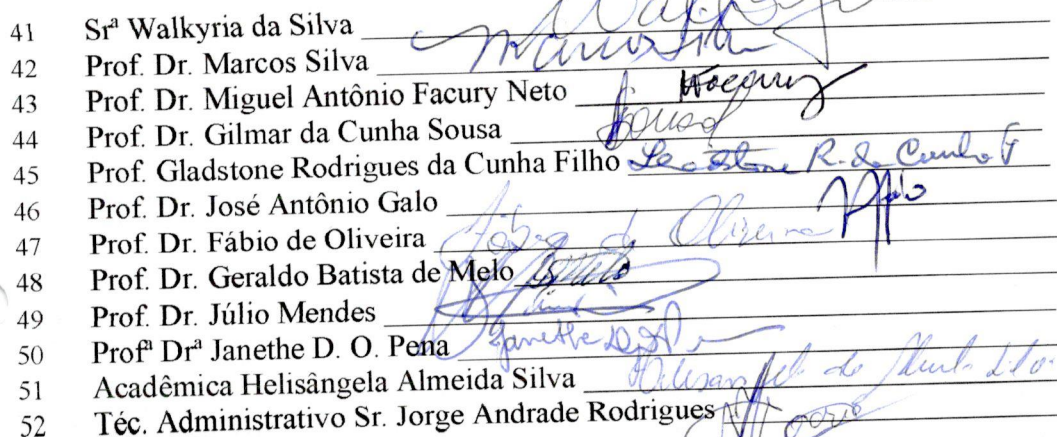 41 Srª Walkyria da Silva
42 Prof. Dr. Marcos Silva Marcos Silva
43 Prof. Dr. Miguel Antônio Facury Neto
44 Prof. Dr. Gilmar da Cunha Sousa
45 Prof. Gladstone Rodrigues da Cunha Filho
46 Prof. Dr. José Antônio Galo
47 Prof. Dr. Fábio de Oliveira Fábio de Oliveira
48 Prof. Dr. Geraldo Batista de Melo
49 Prof. Dr. Júlio Mendes
50 Profª Drª Janethe D. O. Pena
51 Acadêmica Helisângela Almeida Silva
52 Téc. Administrativo Sr. Jorge Andrade Rodrigues